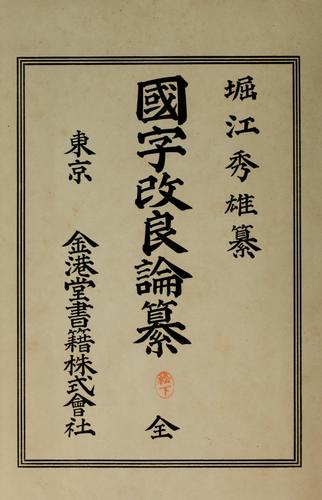 堀江秀雄纂
國字改良論纂 全
松下
東京 金港堂書籍株式會社